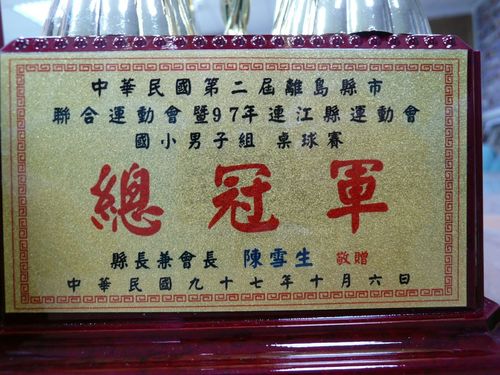 中華民國第二屆離島縣市
聯合運動會暨97年連江縣運動會
國小男子組 桌球賽
總冠軍
縣長兼會長 陳雪生 敬贈
中華民國九十七年十月六日